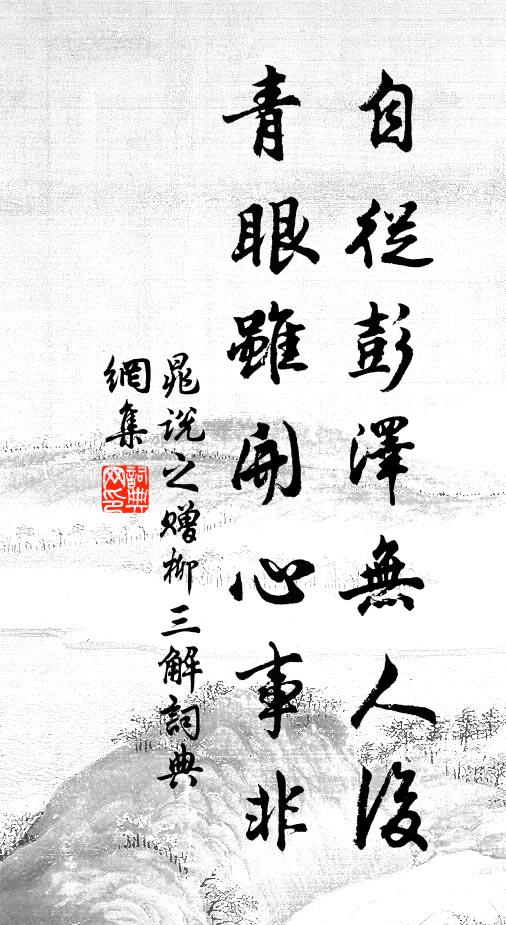 自從彭澤無人後
青眼雖開心事非
晁說之贈柳三解詞典
網集
詞典網印